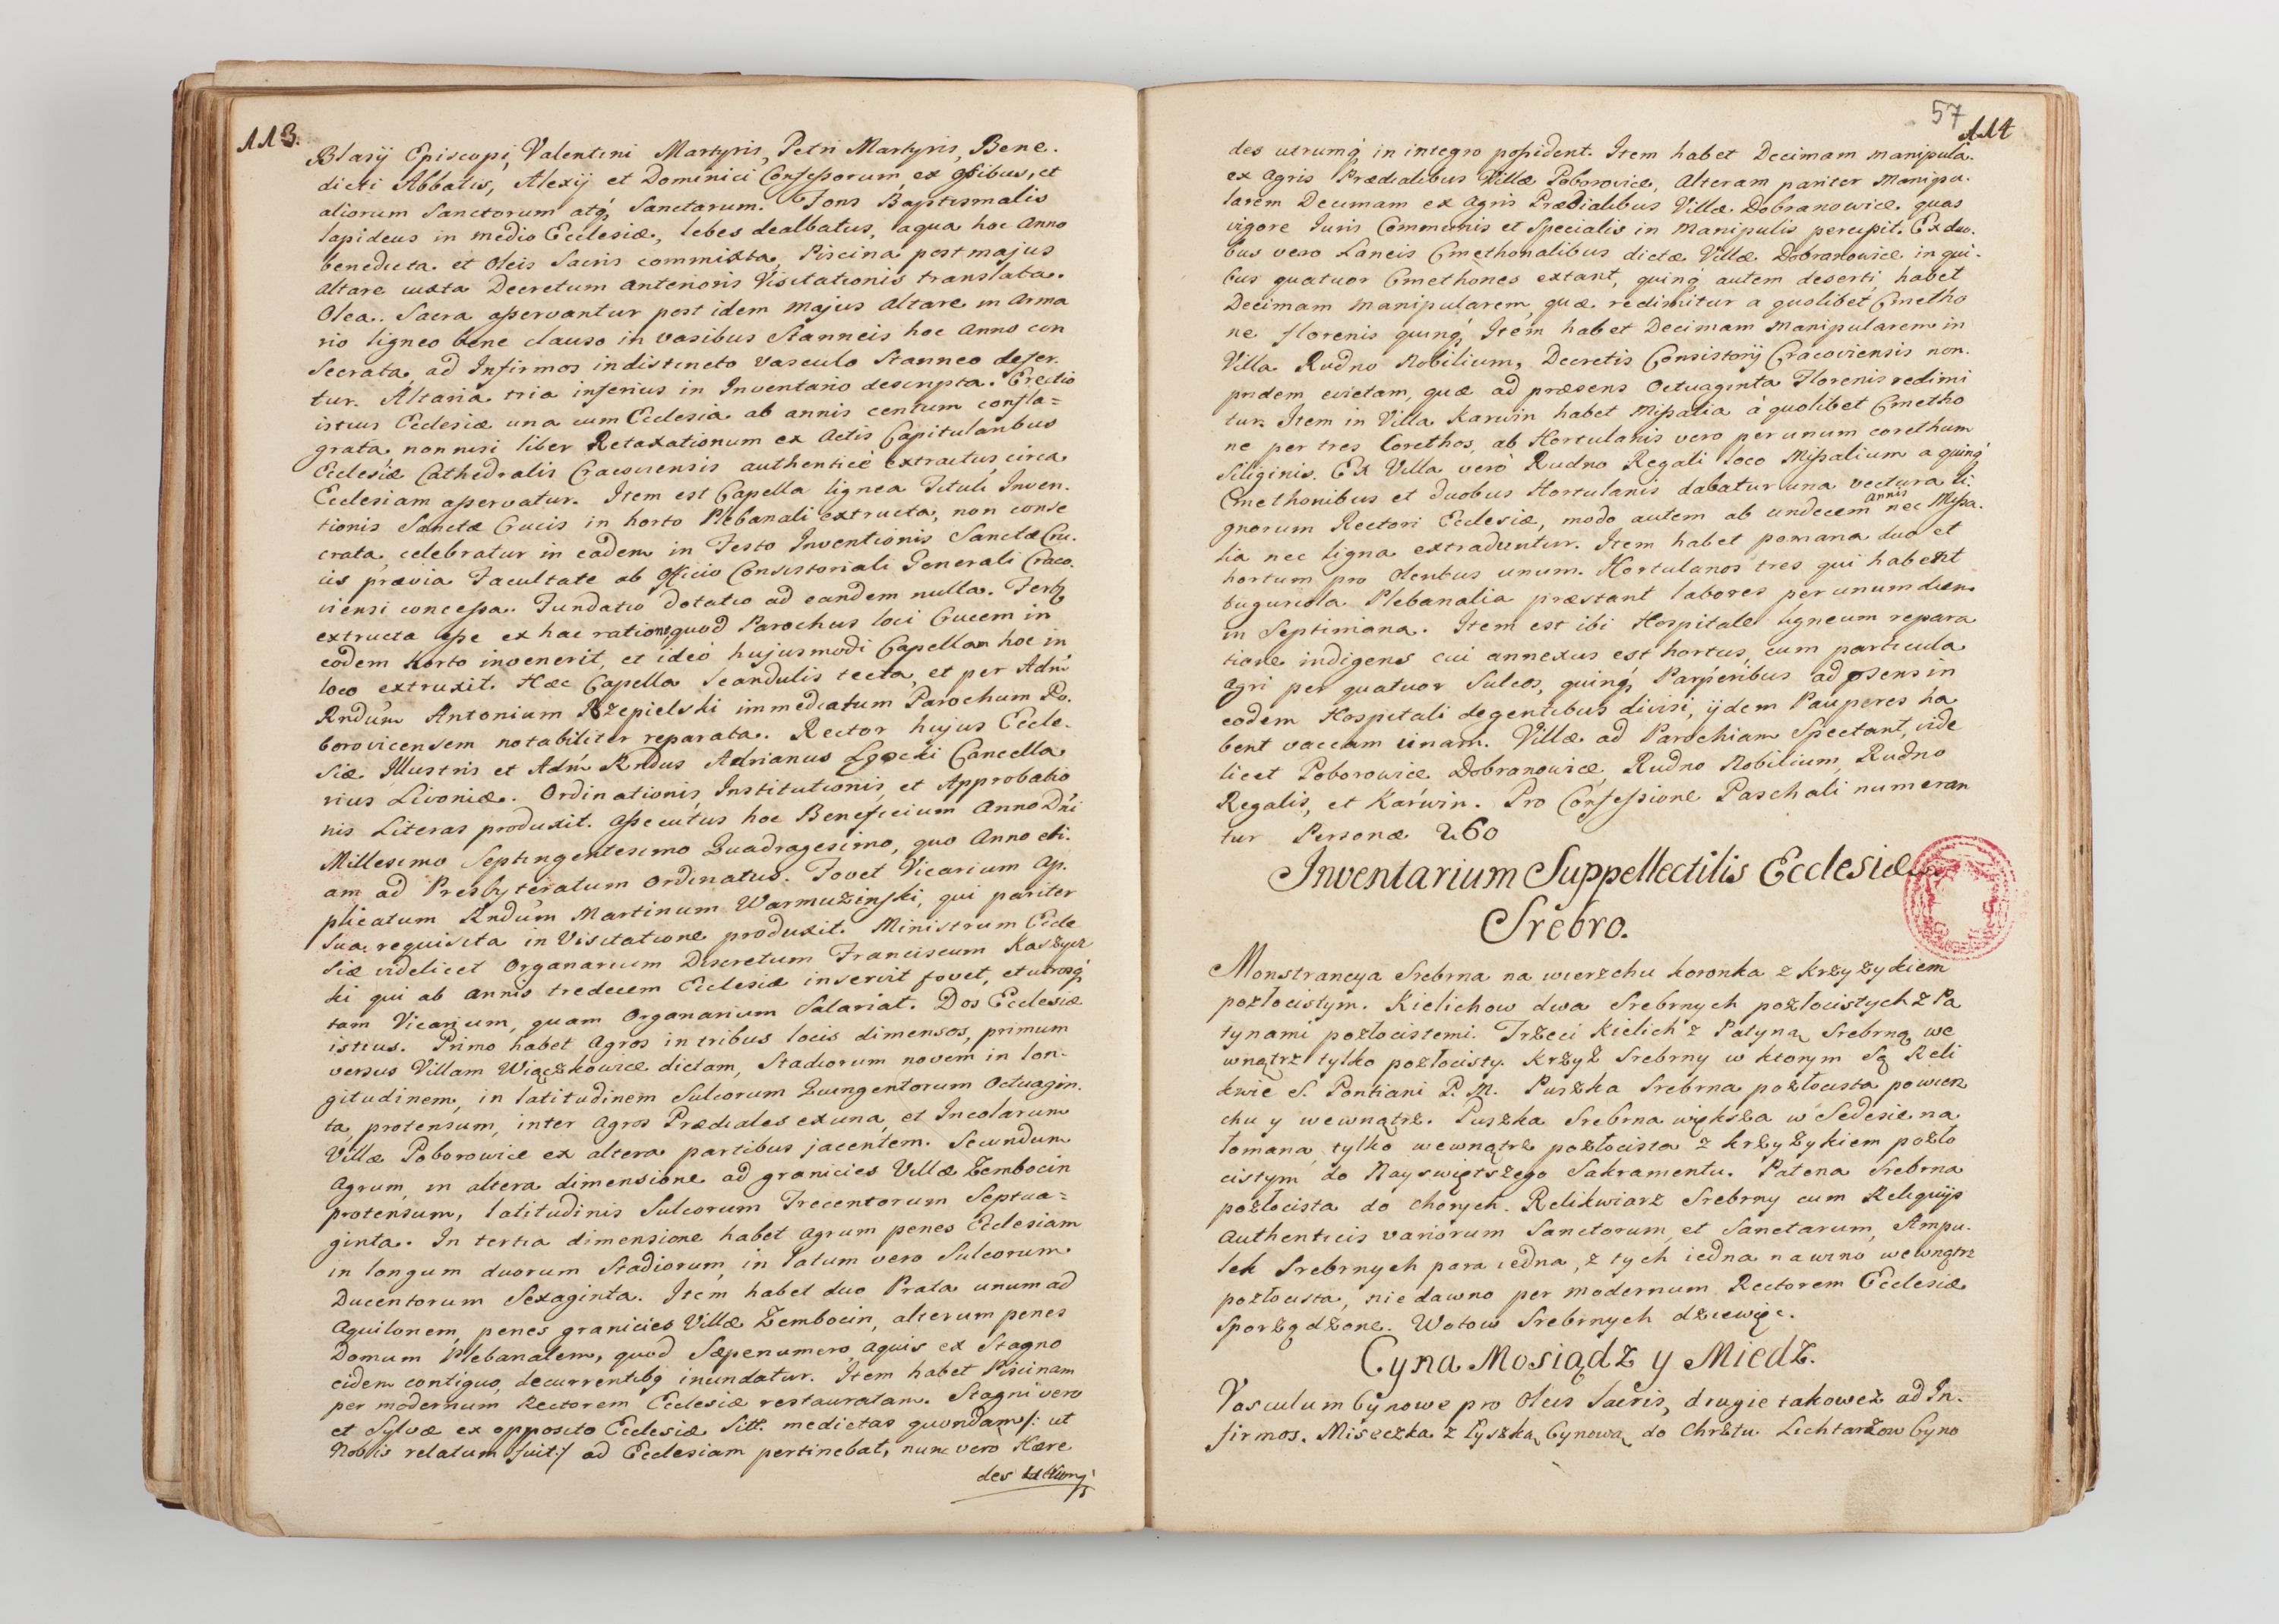 113.
Blasij Episcopi, Valentini Martyris, Petri Martyris, Bene.
dicti Abbatis, Alexij et Dominici Confessorum, ex ossibus, et
aliorum Sanctorum atq, Sanctarum. Fons Baptismalis
lapideus in medio Ecclesiæ, lebes dealbatus, aqua hoc Anno
benedicta et Oleis Sacris commixta, Piscina post majus
Altare iuxta Decretum anterioris Visitationis translata.
Olea Sacra asservantur post idem majus Altare in Arma
rio ligneo bene clauso in vasibus Stanneis hoc Anno con
Secrata, ad Infirmos in distincto vasculo Stanneo defer.
tur. Altaria tria inferius in Inventario descripta. Erectio
istius Ecclesiæ una cum Ecclesia ab annis centum confla=
grata, non nisi liber Retaxationum ex Actis Capitularibus
Ecclesiæ Cathedralis Cracoviensis authenticè extractus, circa
Ecclesiam asservatur. Item est Capella lignea Tituli Inven.
tionis Sanctæ Crucis in horto Plebanali extructa, non conse
crata, celebratur in eadem in Festo Inventionis Sanctæ Cru.
cis prævia Facultate ab Officio Consistoriali Generali Craco.
viensi concessa. Fundatio dotatio ad eandem nulla. Fertur
extructa esse ex hac ratione, quod Parochus loci Crucem in
eodem horto invenerit, et ideo hujusmodi Capellam hoc in
loco extruxit. Hæc Capella Scandulis tecta, et per Adm
Rndum Antonium Rzepielski immediatum Parochum Po.
borovicensem notabiliter reparata. Rector hujus Eccle.
siæ Illustris et Adm Rndus Adrianus Łgocki Cancella
rius Livoniæ. Ordinationis, Institutionis, et Approbatio
nis Literas produxit. Assecutus hoc Beneficium Anno Dni
Millesimo Septingentesimo Quadragesimo, quo Anno eti.
am ad Presbyteratum Ordinatus. Fovet Vicarium Ap.
plicatum Rndum Martinum Warmuzinski, qui pariter
Sua requisita in Visitatione produxit. Ministrum Eccle
siæ videlicet Organarium Discretum Franciscum Kaszyc
ki qui ab annis tredecem Ecclesiæ inservit fovet, et utrosq,
tam Vicarium, quam Organarium Salariat. Dos Ecclesiæ
istius. Primo habet Agros in tribus locis dimensos, primum
versus Villam Więczkowice dictam, Stadiorum novem in lon-
gitudinem, in latitudinem Sulcorum Quingentorum Octuagin.
ta protensum, inter Agros Prædiales ex una, et Incolarum
Villæ Poborowice ex altera partibus jacentem. Secundum
Agrum in altera dimensione ad granicies Villæ Zembocin
protensum, latitudinis Sulcorum Trecentorum Septua=
ginta. In tertia dimensione habet agrum penes Ecclesiam
in longum duorum Stadiorum, in latum vero Sulcorum
Ducentorum Sexaginta. Item habet duo Prata unum ad
Aquilonem, penes granicies Villæ Zembocin, alterum penes
Domum Plebanalem, quod Sæpenumero Aquis ex Stagno
eidem contiguo, decurrentibq inundatur. Item habet Piscinam
per modernum Rectorem Ecclesiæ restauratam. Stagni vero
et Sylvæ ex opposito Ecclesiæ Sitt. medietas quondam /: ut
Nobis relatum fuit:/ ad Ecclesiam pertinebat, nunc vero Hære
des
57
114
des utrumq, in integro possident. Item habet Decimam manipula.
ex Agris Prædialibus Villæ Poborovice, Alteram pariter Manipu.
larem Decimam ex Agris Prædialibus Villæ Dobranowice, quas
vigore Iuris Communis et Specialis in Manipulis percipit. Ex duo.
bus vero Laneis Cmethonalibus dictæ Villæ Dobranowice in qui.
bus quatuor Cmethones extant, quinq, autem deserti, habet
Decimam manipularem, quæ redimitur a quolibet Cmetho
ne florenis quinq, Item habet Decimam Manipularem in
Villa Rudno Nobilium, Decretis Consistorij Cracoviensis non.
pridem evictam, quæ ad præsens Octuaginta Florenis redimi
tur. Item in Villa Karwin habet Missalia à quolibet Cmetho
ne per tres Corethos, ab Hortulanis vero per unum corethum
Siliginis. Ex Villa verò Rudno Regali loco Missalium a quinq,
Cmethonibus et duobus Hortulanis dabatur una vectura li.
gnorum Rectori Ecclesiæ, modo autem ab undecem annis nec Missa.
lia nec ligna extraduntur. Item habet pomaria duo et
hortum pro Oleribus unum. Hortulanos tres qui habent
tuguriola Plebanalia præstant labores per unum diem
in Septimana. Item est ibi Hospitale ligneum repara
tione indigens cui annexus est hortus, cum particula
agri per quatuor Sulcos, quinq, Pauperibus ad psens in
eodem Hospitali degentibus divisi, ijdem Pauperes ha
bent vaccam unam. Villæ ad Parochiam Spectant, vide
licet Poborowice Dobranowice, Rudno Nobilium, Rudno
Regalis, et Karwin. Pro Confessione Paschali numeran
tur Personæ 260
Inventarium Suppellectilis Ecclesiæ
Srebro.
Monstrancya Srebrna na wierzchu koronka z krzyżykiem
pozłocistym. Kielichow dwa Srebrnych pozłocistych z Pa
tynami pozłocistemi. Trzeci kielich z Patyną Srebrną we
wnątrz tylko pozłocisty. Krzyż Srebrny w ktorym Są Reli
kwie S. Pontiani P. M. Puszka Srebrna pozłocista powierz
chu y wewnątrz. Puszka Srebrna większa w Sedesie na
łomana tylko wewnątrz pozłocista z krzyżykiem pozło
cistym do Nayświętszego Sakramentu. Patena Srebrna
pozłocista do Chorych. Relikwiarz Srebrny cum Reliquijs
Authenticis variorum Sanctorum et Sanctarum, Ampu.
lek Srebrnych para iedna, z tych iedna na wino wewnątrz
pozłocista, nie dawno per modernum Rectorem Ecclesiæ
Sporządzone. Wotow Srebrnych dziewięc.
Cyna Mosiądz y Miedz.
Vasculum Cynowe pro Oleis Sacris, drugie takowez ad In.
firmos. Miseczka z łyszką Cynową do Chrztu Lichtarzow Cyno